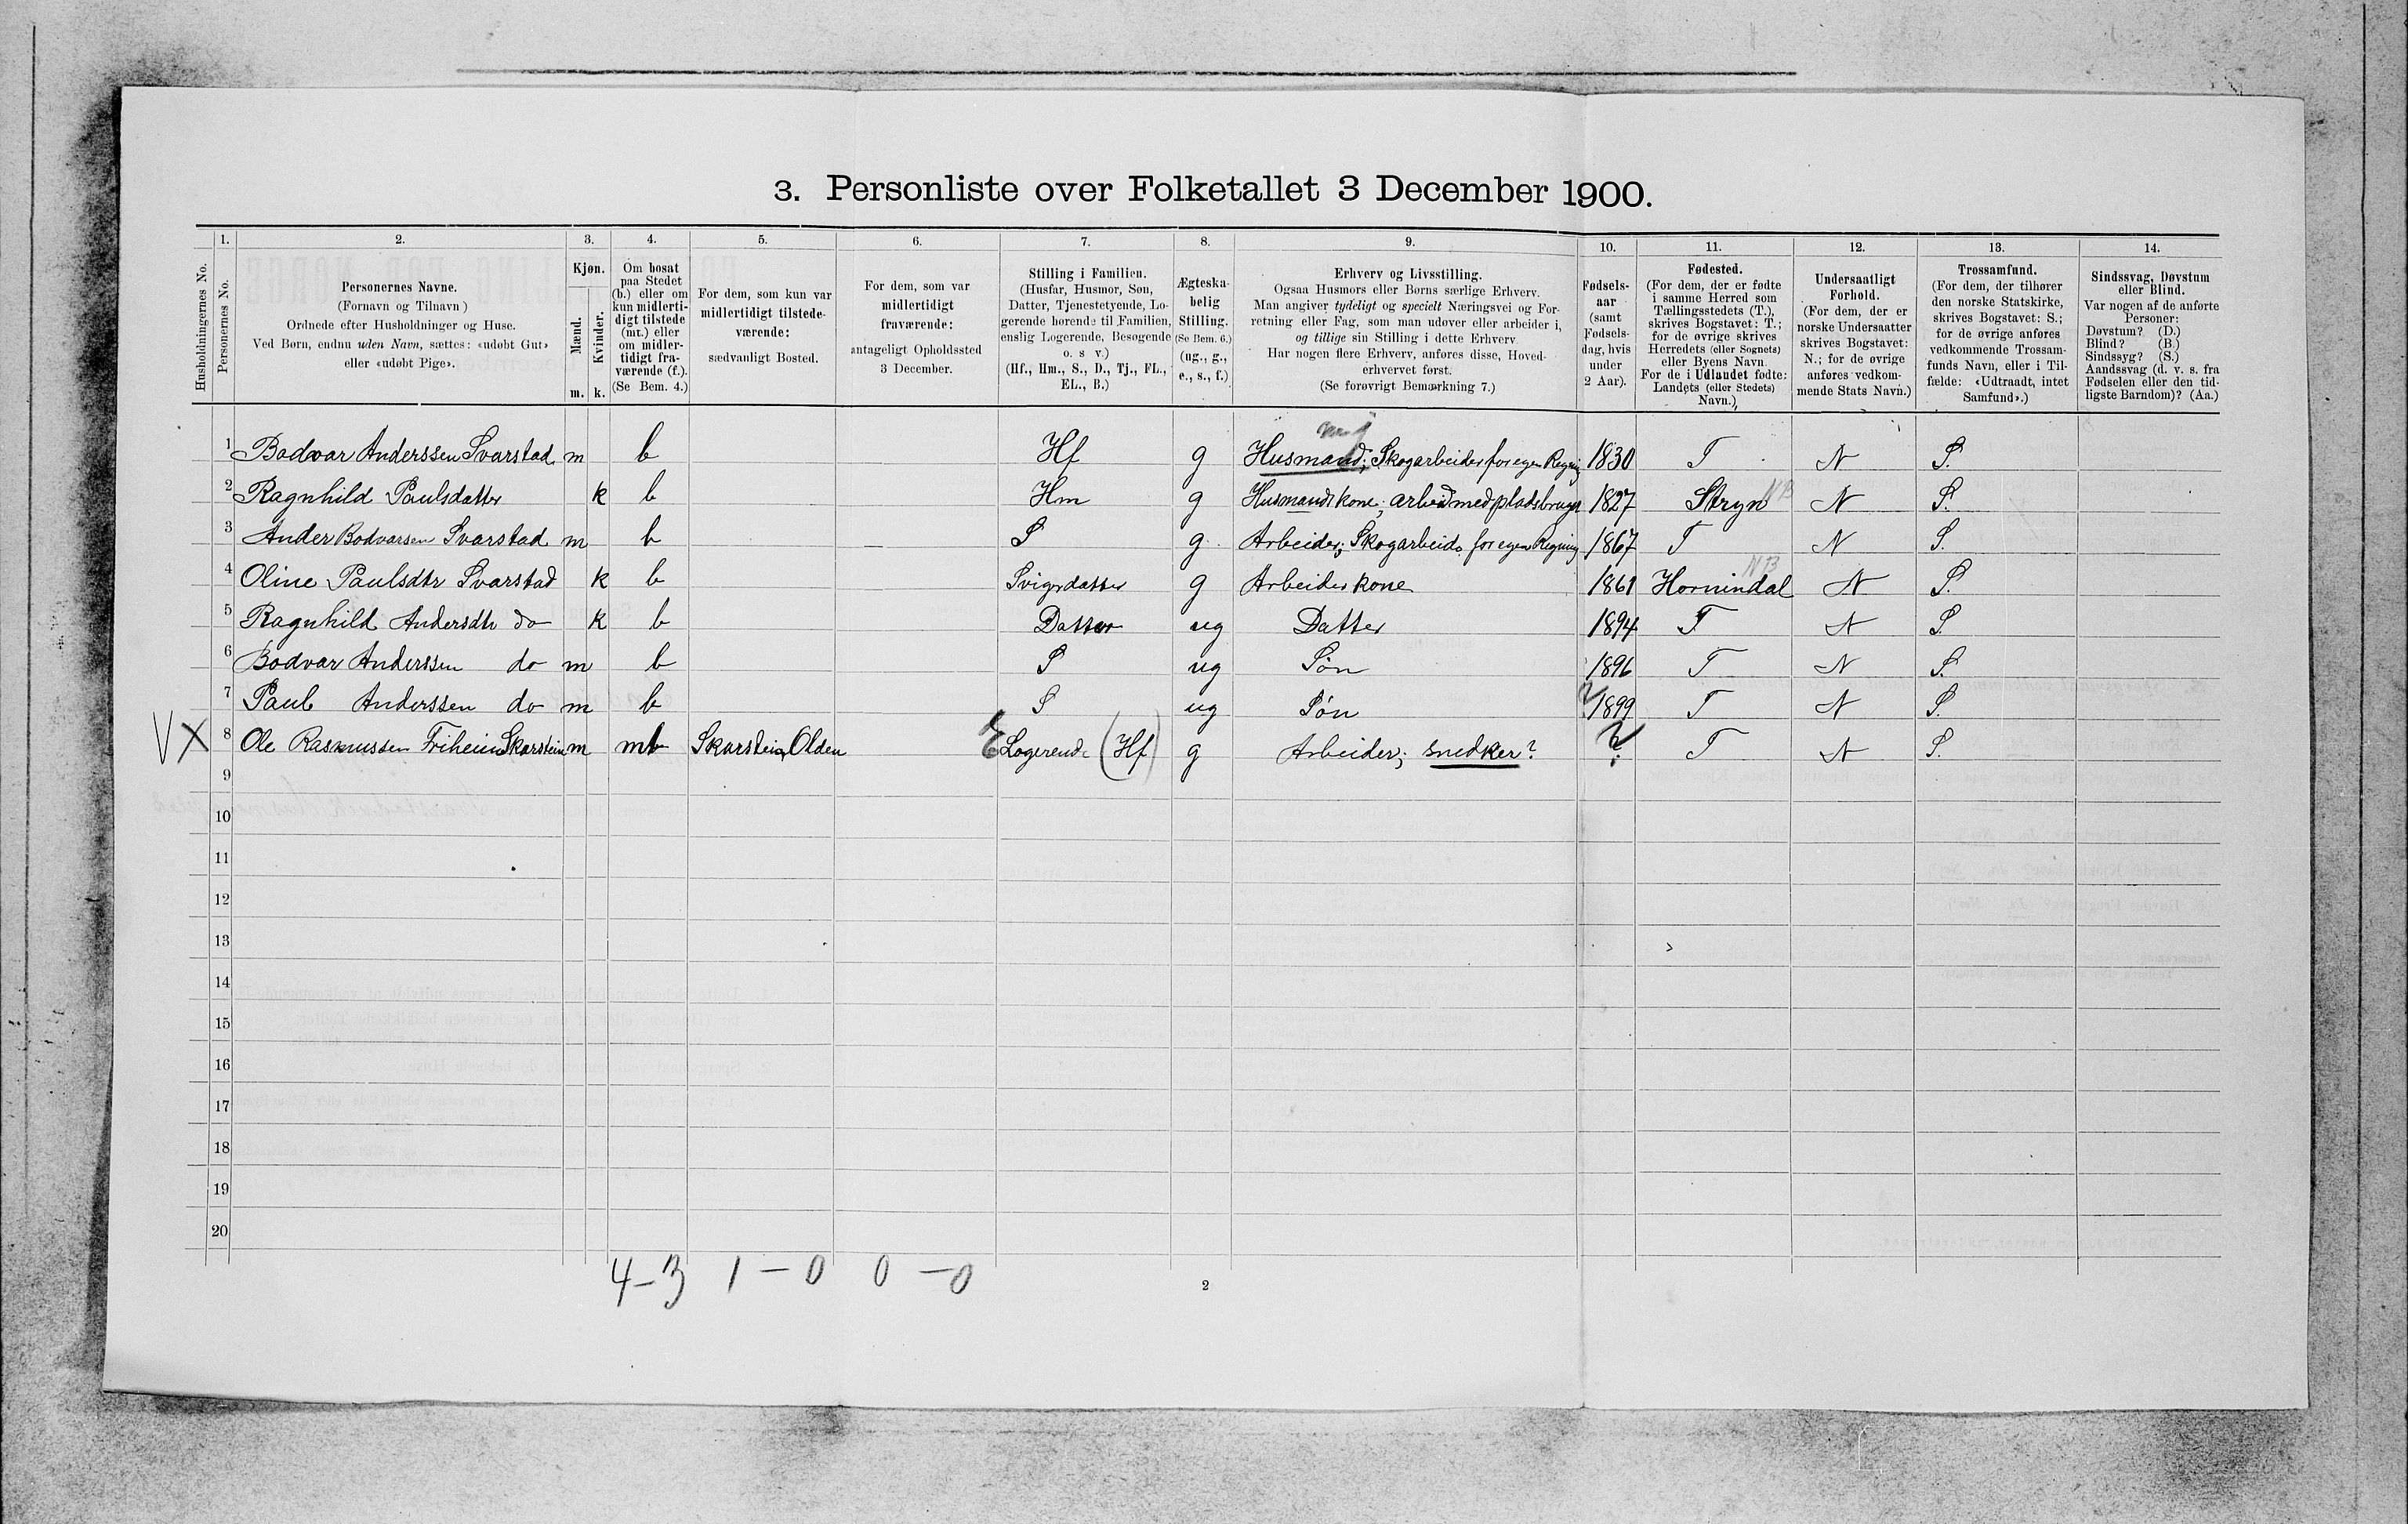 3. Personliste over Folketallet 3 December 1900.
Husholdningernes No.
1.
Personernes No.
2.
Personernes Navne.
(Fornavn og Tilnavn)
Ordnede efter Husholdninger og Huse.
Ved Børn, endnu uden Navn, sættes: «udøbt Gut»
eller «udøbt Pige».
3.
Kjøn.
Mænd.
Kvinder.
m. k.
4.
Om bosat
paa Stedet
(b.) eller om
kun midlerti-
digt tilstede
(mt.) eller
om midler-
tidigt fra-
værende (f.).
(Se Bem. 4.)
5.
For dem, som kun var
midlertidigt tilstede-
værende:
sædvanligt Bosted.
6.
For dem, som var
midlertidigt
fraværende:
antageligt Opholdssted
3 December.
7.
Stilling i Familien.
(Husfar, Husmor, Søn,
Datter, Tjenestetyende, Lo-
gerende hørende til Familien,
enslig Logerende, Besøgende
o. s v.)
(Hf., Hm., S., D., Tj., FL.,
EL., B.)
8.
Ægteska-
belig
Stilling.
(Se Bem. 6.)
(ug., g.,
e., s., f.)
9.
Erhverv og Livsstilling.
Ogsaa Husmors eller Børns særlige Erhverv.
Man angiver tydeligt og specielt Næringsvei og For-
retning eller Fag, som man udøver eller arbeider i,
og tillige sin Stilling i dette Erhverv.
Har nogen flere Erhverv, anføres disse, Hoved-
erhvervet først.
(Se forøvrigt Bemærkning 7.)
10.
Fødsels-
aar
(samt
Fødsels-
dag, hvis
under
2 Aar).
11.
Fødested.
(For dem, der er fødte
i samme Herred som
Tællingsstedets (T.),
skrives Bogstavet: T.;
for de øvrige skrives
Herredets (eller Sognets)
eller Byens Navn.
For de i Udlandet fødte:
Landets (eller Stedets)
Navn.)
12.
Undersaatligt
Forhold.
(For dem, der er
norske Undersaatter
skrives Bogstavet:
N.; for de øvrige
anføres vedkom-
mende Stats Navn.)
13.
Trossamfund.
(For dem, der tilhører
den norske Statskirke,
skrives Bogstavet: S.;
for de øvrige anføres
vedkommende Trossam-
funds Navn, eller i Til-
fælde: «Udtraadt, intet
Samfund».)
14.
Sindssvag, Døvstum
eller Blind.
Var nogen af de anførte
Personer:
Døvstum? (D.)
Blind? (B.)
Sindssyg? (S.)
Aandssvag (d. v. s. fra
Fødselen eller den tid-
ligste Barndom)? (Aa.)
1 Bodvar Anderssen Svarstad m b Hf g Husmand; Skogarbeider for egen Regning 1830 T N S.
2 Ragnhild Paulsdatter k b Hm g Husmandskone; arbeid med pladsbruget 1827 Stryn NB N S.
3 Ander Bodvarsen Svarstad m b S g. Arbeider; Skogarbeide for egen Regning 1867 T N S.
4 Oline Paulsdtr Svarstad k b Svigerdatter g Arbeiderkone 1861 Hornindal NB N S.
5 Ragnhild Andersdtr do k b Datter ug Datter 1894 T N S.
6 Bodvar Anderssen do m b S ug Søn 1896 T N S.
7 Paul Anderssen do m b S ug Søn 1899 T N S.
VX 8 Ole Rasmussen Friheim Skarstein m mt Skarstein, Olden E Logerende (Hf) g Arbeider; snedker? ? T N S.
9
10
11
12
13
14
15
16
17
18
19
20
4-3 1-0 0-0
2